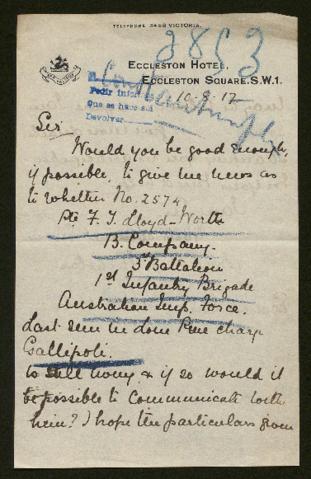 TELEPHONE 3488 VICTORIA.
2853
ECCLESTON HOTEL,
ECCLESTON SQUARE. S.W.1.
Pedir
Que se
Devolver
10.9.17
Sir
Would you be good enough,
if possible, to give me news as
to whether No. 2574
Pte F. J. Lloyd-Worth
B. Company.
3rd Battalion
1st Infantry Brigade
Australian Imp. Force.
Last seen in Lone Pine charge
Gallipoli.
is still living & if so would it
be possible to communicate with
him? I hope the particulars given